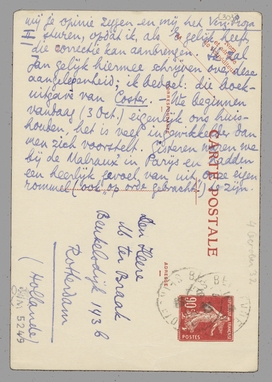 mij je opinie zeggen en mij het Versl. Propria
sturen, opdat ik, als je gelijk heeft,
die correctie kan aanbrengen. Ik zal
Jan gelijk hiermee schrijven over deze
aangelegenheid; ik bedoel: die boek-
uitgave van Coster. We beginnen
vandaag (3 Oct.) eigenlijk ons huis-
houden, het is veel ingewikkelder dan
men zich voorstelt. Gisteren waren we
bij de Malraux in Parijs en hadden
een heerlijk gevoel van uit onze eigen
rommel (ook op orde gebracht!) te zijn.
CARTE POSTALE
ADRESSE
Den Heere
M. ter Braak
Beukelsdijk 143 b
Rotterdam
(Hollande)
90c
POSTES
5249